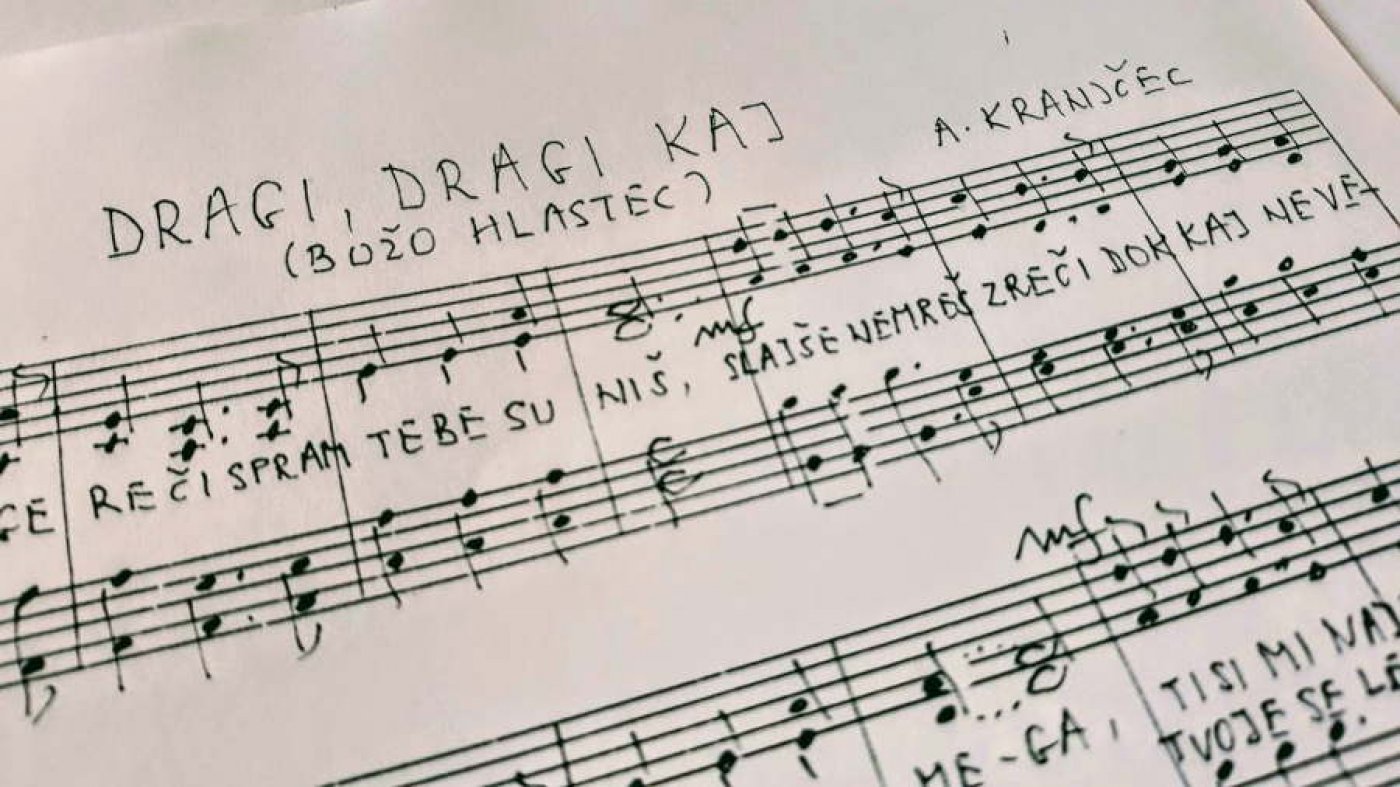 DRAGI, DRAGI KAJ
(BOŽO HLASTEC)
A. KRANJČEC
REČI SPRAM TEBE SU NIŠ, SLAJŠE NEMREŠ ZREČI DOK KAJ NE VE-
mf
mf
ME-GA, TI SI MI NAJ
TVOJE SE LE